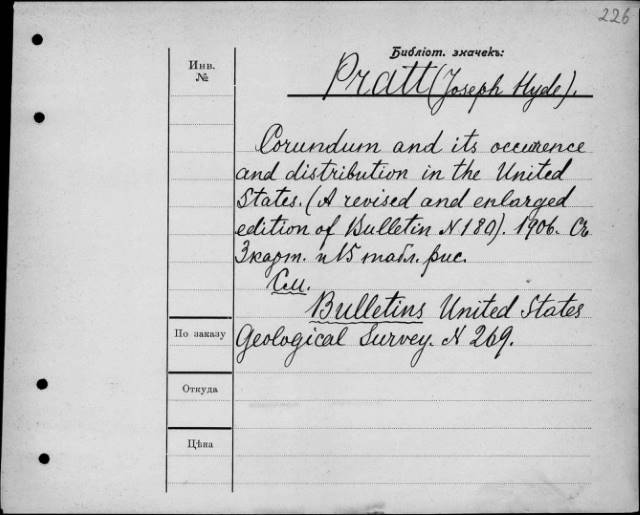 226
Библіот. значекъ:
Инв.
№
Pratt (Joseph Hyde).
Corundum and its occurence
and distribution in the United
States. (A revised and enlarged
edition of Bulletin N 180). 1906. Съ
3 карт. и 15 табл. рис.
См.
Bulletins United States
По заказу
Geological Survey. N 269.
Откуда
Цѣна